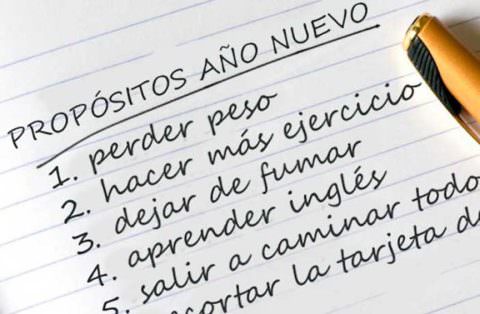 PROPÓSITOS AÑO NUEVO
1. perder peso
2. hacer más ejercicio
3. dejar de fumar
4. aprender inglés
5. salir a caminar todo
la tarjeta